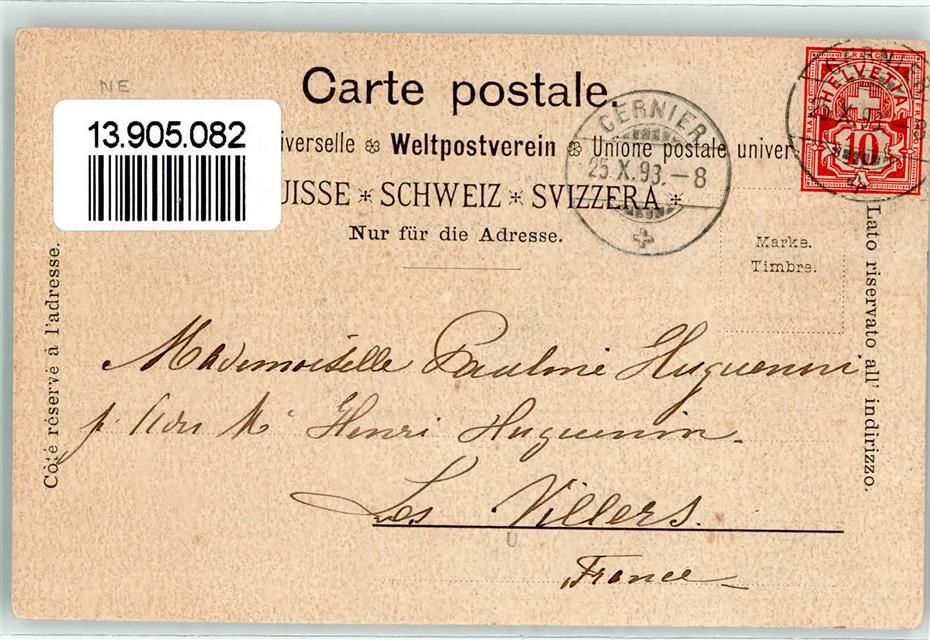 NE
Carte postale.
13.905.082
iverselle ❊ Weltpostverein ❊ Unione postale univer
UISSE * SCHWEIZ * SVIZZERA *
Nur für die Adresse.
CERNIER
25.X.93.-8
FRANCO
HELVETIA
10
Marke.
Timbre.
Côté réservé à l'adresse.
Lato riservato all' indirizzo.
Mademoiselle Pauline Huguenin
Henri Huguenin.
Les Villers.
France